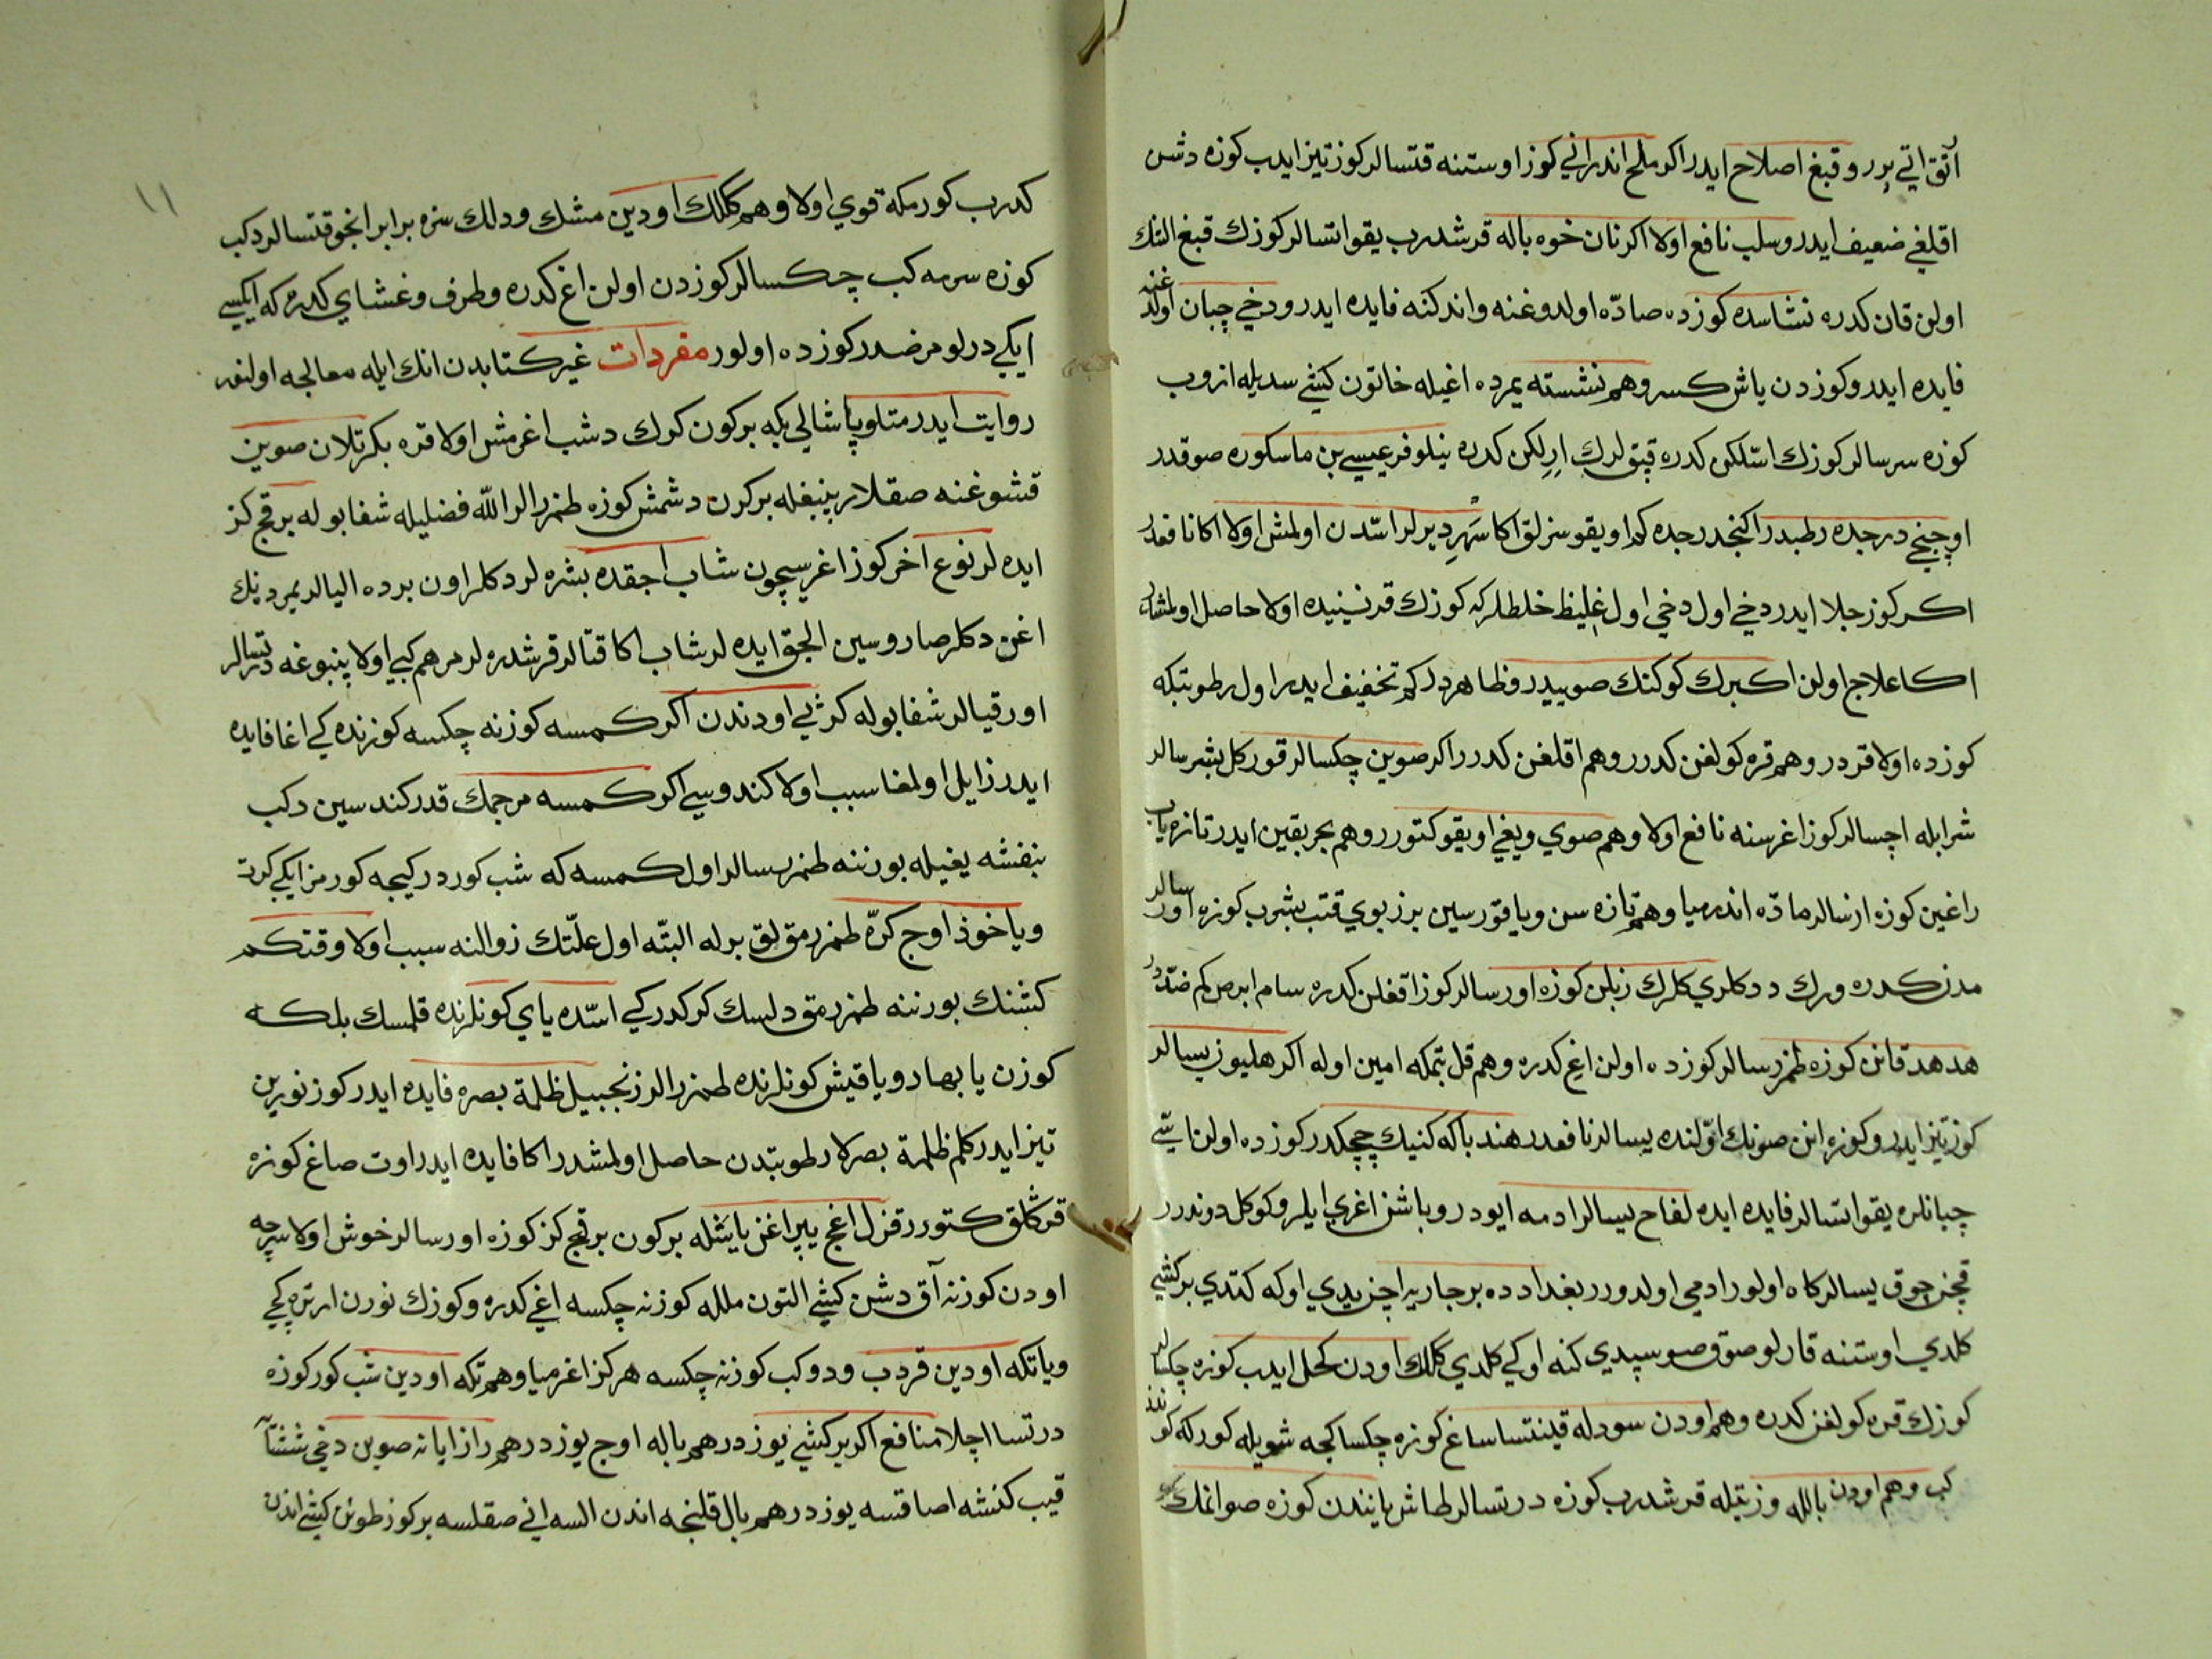 آتق اتي برر و قبغ اصلاح ايدر اكر ملح اندراني كوز اوستنه قتسالر كوز تيز ايدب كوزه دشن
اقلغي ضعيف ايدر و سلب نافع اولا اكر نان خوه باله قرشدرب يقو اتسالر كوزك قبغ التك
اولن قان كدره نشاسده كوزده صادّه اولدوغنه واندكنه فايده ايدر ودخي چبان اولدغنه
فايده ايدر و كوزدن ياش كسر وهم نشسته يمرده اغيله خاتون كيشي سديله ازوب
كوزه سرسالر كوزك اسّلكن كدره قبق لرك ارلكن كدره نيلوفر عيسي بن ماسكوره صوقدر
اوچنجي درجده رطبدر اكنجدرجده كم اويقوسزلق اكا سَهَر ديرلر اسّدن اولمش اولا اكا نافعدر
اكر كوز جلا ايدر دخي اول دخي اول غليظ خلطلر كه كوزك قرنسينيده اولا حاصل اولمشدر
اكا علاج اولن اكسبرك كوكنك صوييدر و ظاهردر كم تخفيف ايدر اول رطوبتكه
كوزده اولا قردر وهم قره كولغن كدرر وهم اقلغن كدرر اكر صوين چكسالر قوركل بشرسالر
شرابله اچسالر كوز اغرسنه نافع اولا وهم صوي ويغي اويقو كتورر وهم بجر بقين ايدر تازه ياب
راغين كوزه ازسالر مادّه اندرميا وهم تازه سن ويا قورسين برز بوي قتب بشرب كوزه اورسالر
مدن كدره ورك ددكلري كلرك زبلن كوزه اورسالر كوز اقغلن كدره سام ابرص كم ضدّدر
هدهد قانن كوزه طمزرسالر كوزده اولن اغ كدره وهم قل بتمكه امين اوله اكر هليون يسالر
كوز تيز ايدر و كوزه انن صونك اوّلنده يسالر نافعدر هندبا كه كنيك چچكدر كوزده اولن اسّي
چبانلره يقو اتسالر فايده ايده لفاح يسالر ادمه ايودر و باشن اغري ايلر و كوكل دوندرر
قچن جوق يسالر كاه اولور ادمي اولدورر بغدادده بر جاريه اچن يدي اوكه كتدي بر كشي
كلدي اوستنه قارلو صوق صو سپدي كنه اوكي كلدي كلك اودن كحل ايدب كوزه چكسالر
كوزك قره كولغن كدره وهم اودن سودله قينتسا ساغ كوزه چكسا كجه شويله كورر كه كوندز
كب وهم اودن بالله و زيتيله قرشدرب كوزه درتسالر طاش ياينندن كوزه صو انمك
كدرب كورمكه قوي اولا وهم كلك اودين مشك ودلك سزه برابر انجو قتسالر دكب
كوزه سرمه كب چكسالر كوزدن اولن اغ كدره و طرف وغشاي كدره كه ايكيسي
ايكي درلو مرضدر كوزده اولور مفردات غير كتابدن انك ايله معالجه اولنور
روايت ايدر متاو پاشا لي بكه بر كون كوك دشب اغرمش اولا قره بكرتلان صوين
قشوغنه صقلار پنبغله بركرن دشمش كوزه طمزرالر الله فضليله شفا بوله بر قچ كز
ايده لر نوع اخر كوز اغرسيچون شاب اجقده بشره لر دكلر اون برده اليالر يمرد نيك
اغن دكلر صاروسين الجق ايده لر شاب اكا قتالر قرشدره لر مرهم كبي اولا پنبوغه درتسالر
اورقيالر شفا بوله كرثبي اودندن اكر كمسه كوزنه چكسه كوزنده كي اغا فايده
ايدر زايل اولمغا سبب اولا كندوسي اكر كمسه مرجمك قدر كندسين دكب
بنفشه يغيله بورننه طمزرسالر اول كمسه كه شب كوردر كيجه كورمز ايكي كرت
ويا خوذ اوچ كرّه طمزرمق لق برله البتّه اول علّتك زوالنه سبب اولا وقتكم
كشنك بورننه طمزرمق دلسك كركدر كي اسّده ياي كونلرنده قلمسك بلكه
كوزن يا بهار و يا قيش كونلرنده طمزرالر زنجبيل ظلمة بصره فايده ايدر كوز نورين
تيز ايدر كلم ظلمة بصر كا رطوبتدن حاصل اولمشدر اكا فايده ايدر اوت صاغ كوزه
قرڭلق كتورر قزل اغج يپراغن يايشله بركون بر قچ كز كوزه اورسالر خوش اولا سرچه
اودن كوزنه آق دشن كيشي التون ملله كوزنه چكسه اغي كدره و كوزك نورن ارتره كچي
ويا تكه اودين قردب ودوكب كوزنه چكسه هركز اغرميا وهم تكه اودين شب كور كوزه
درتسا اچلا منافع اكر بر كشي يوز درهم باله اوچ يوز درهم رازايانه صوين دخي ششتآ
قيب كنشه اصا قتسه يوز درهم بال قلنجه اندن السه اني صقلسه بر كوز طوتن كيشي اندن